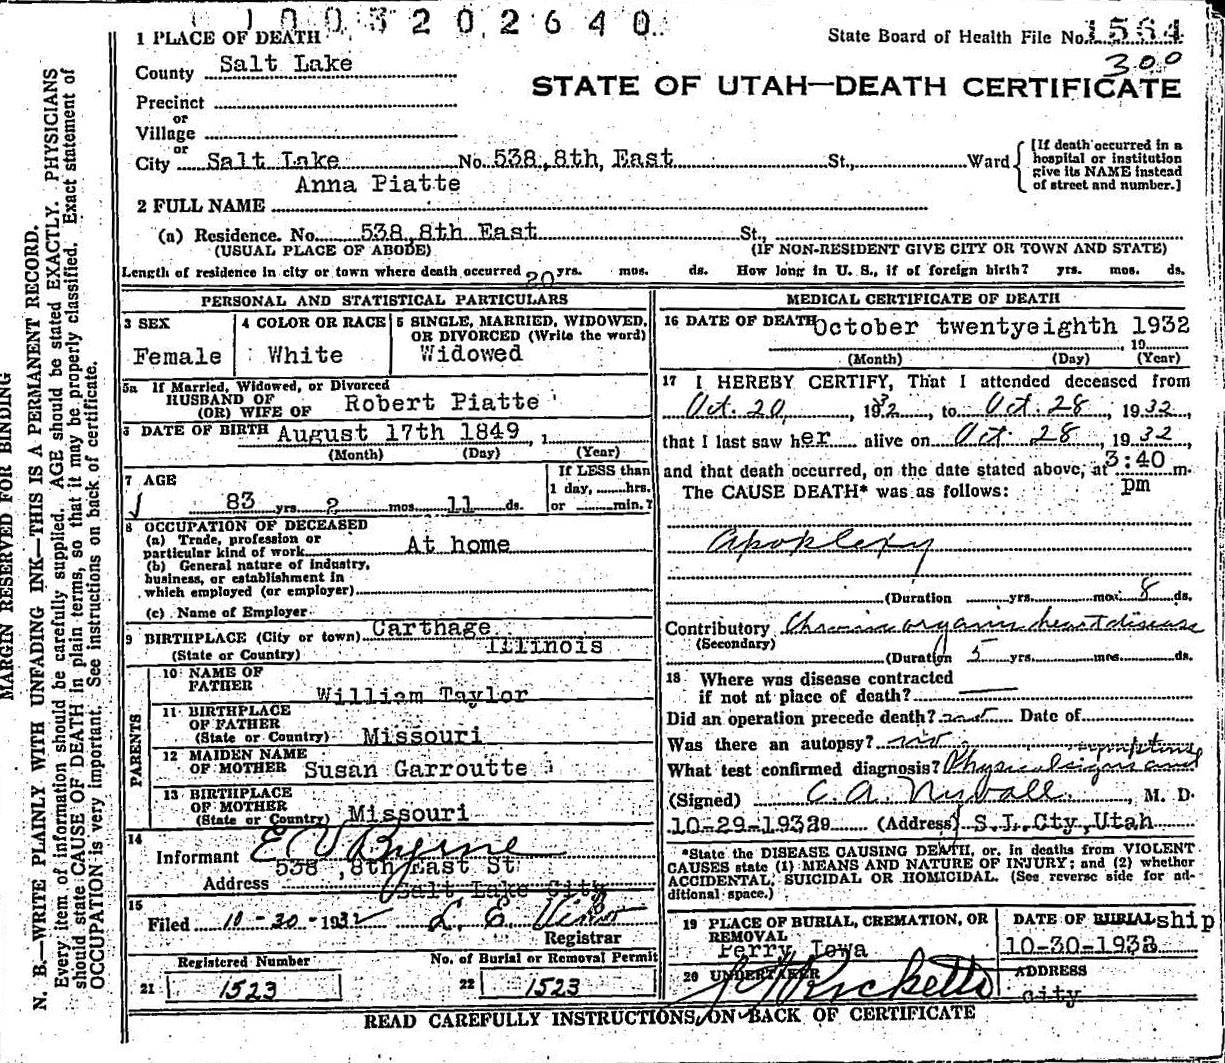 1003202640
1 PLACE OF DEATH
State Board of Health File No. 1564
County Salt Lake
300
STATE OF UTAH—DEATH CERTIFICATE
Precinct
or
Village
or
City Salt Lake No. 538, 8th, East St., Ward
[If death occurred in a hospital or institution give its NAME instead of street and number.]
Anna Piatte
2 FULL NAME
(a) Residence. No. 538, 8th East St.,
(USUAL PLACE OF ABODE) (IF NON-RESIDENT GIVE CITY OR TOWN AND STATE)
Length of residence in city or town where death occurred 20 yrs. mos. ds. How long in U. S., if of foreign birth? yrs. mos. ds.
PERSONAL AND STATISTICAL PARTICULARS
3 SEX
Female
4 COLOR OR RACE
White
5 SINGLE, MARRIED, WIDOWED,
OR DIVORCED (Write the word)
Widowed
5a If Married, Widowed, or Divorced
HUSBAND OF
(OR) WIFE OF Robert Piatte
6 DATE OF BIRTH August 17th 1849, 1
(Month) (Day) (Year)
7 AGE
83 yrs. 2 mos. 11 ds.
If LESS than
1 day, hrs.
or min.?
8 OCCUPATION OF DECEASED
(a) Trade, profession or
particular kind of work At home
(b) General nature of industry,
business, or establishment in
which employed (or employer)
(c) Name of Employer
9 BIRTHPLACE (City or town) Carthage
(State or Country) Illinois
PARENTS
10 NAME OF
FATHER William Taylor
11 BIRTHPLACE
OF FATHER
(State or Country) Missouri
12 MAIDEN NAME
OF MOTHER Susan Garroutte
13 BIRTHPLACE
OF MOTHER
(State or Country) Missouri
14
Informant E V Byrne
538 ,8th East St
Address Salt Lake City
15
Filed 10-30-1932 L. E.
Registrar
Registered Number
21 1523
No. of Burial or Removal Permit
22 1523
MEDICAL CERTIFICATE OF DEATH
16 DATE OF DEATH October twentyeighth 1932
, 19
(Month) (Day) (Year)
17 I HEREBY CERTIFY, That I attended deceased from
Oct. 20, 1932, to Oct. 28, 1932,
that I last saw her alive on Oct 28, 1932,
and that death occurred, on the date stated above, at 3:40 m.
pm
The CAUSE DEATH* was as follows:
Apoplexy
(Duration yrs. mos. 8 ds.
Contributory Chronic organic heart disease
(Secondary)
(Duration 5 yrs. mos. ds.
18 Where was disease contracted
if not at place of death?
Did an operation precede death? not Date of
Was there an autopsy? no
symptoms
What test confirmed diagnosis? Physical signs and
(Signed) C. A. , M. D.
10-29-1932 (Address) S.L.Cty,Utah
*State the DISEASE CAUSING DEATH, or, in deaths from VIOLENT
CAUSES state (1) MEANS AND NATURE OF INJURY; and (2) whether
ACCIDENTAL, SUICIDAL OR HOMICIDAL. (See reverse side for ad-
ditional space.)
19 PLACE OF BURIAL, CREMATION, OR
REMOVAL
Perry Iowa
DATE OF BURIAL ship
10-30-1932
20 UNDERTAKER
Ricketts
ADDRESS
city
READ CAREFULLY INSTRUCTIONS ON BACK OF CERTIFICATE
MARGIN RESERVED FOR BINDING
N. B.—WRITE PLAINLY WITH UNFADING INK—THIS IS A PERMANENT RECORD.
Every item of information should be carefully supplied. AGE should be stated EXACTLY. PHYSICIANS
should state CAUSE OF DEATH in plain terms, so that it may be properly classified. Exact statement of
OCCUPATION is very important. See instructions on back of certificate.